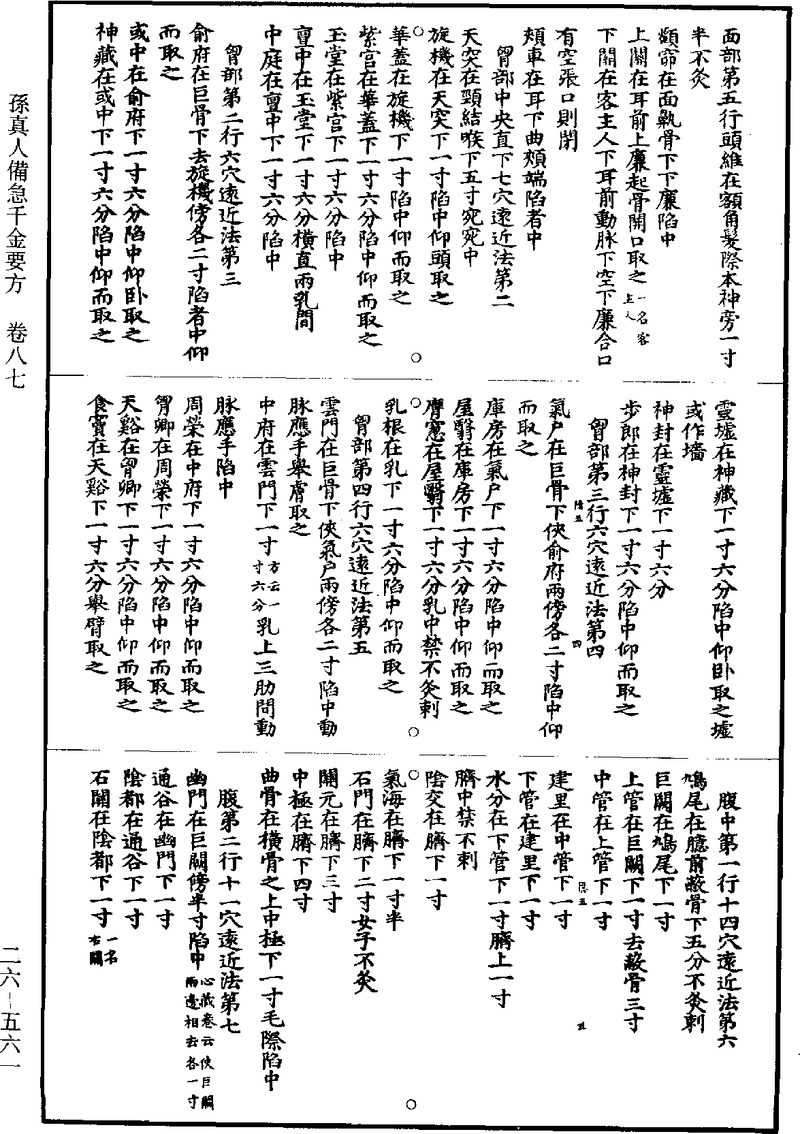 面部第五行頭維在額角髮際本神旁一寸
半不灸
顴窌在面䪼骨下下廉陷中
上關在耳前上廉起骨開口取之一名客主人
下關在客主人下耳前動脉下空下廉合口
有空張口則閉
頰車在耳下曲頰端陷者中
胷部中央直下七穴遠近法第二
天突在頸結喉下五寸宛宛中
旋機在天突下一寸陷中仰頭取之
華蓋在旋機下一寸陷中仰而取之
紫宮在華蓋下一寸六分陷中仰而取之
玉堂在紫宮下一寸六分陷中
亶中在玉堂下一寸六分橫直兩乳間
中庭在亶中下一寸六分陷中
胷部第二行六穴遠近法第三
俞府在巨骨下去旋機傍各二寸陷者中仰
而取之
或中在俞府下一寸六分陷中仰卧取之
神藏在或中下一寸六分陷中仰而取之
靈墟在神藏下一寸六分陷中仰卧取之墟
或作墻
神封在靈墟下一寸六分
步郎在神封下一寸六分陷中仰而取之
胷部第三行六穴遠近法第四
氣戶在巨骨下俠俞府兩傍各二寸陷中仰
而取之
庫房在氣戶下一寸六分陷中仰而取之
屋翳在庫房下一寸六分陷中仰而取之
膺窻在屋翳下一寸六分乳中禁不灸刺
乳根在乳下一寸六分陷中仰而取之
胷部第四行六穴遠近法第五
雲門在巨骨下俠氣戶兩傍各二寸陷中動
脉應手舉膚取之
中府在雲門下一寸方云一寸六分乳上三肋間動
脉應手陷中
周榮在中府下一寸六分陷中仰而取之
胷卿在周榮下一寸六分陷中仰而取之
天谿在胷卿下一寸六分陷中仰而取之
食竇在天谿下一寸六分舉臂取之
腹中第一行十四穴遠近法第六
鳩尾在臆前蔽骨下五分不灸刺
巨闕在鳩尾下一寸
上管在巨闕下一寸去蔽骨三寸
中管在上管下一寸
建里在中管下一寸
下管在建里下一寸
水分在下管下一寸臍上一寸
臍中禁不刺
陰交在臍下一寸
氣海在臍下一寸半
石門在臍下二寸女子不灸
關元在臍下三寸
中極在臍下四寸
曲骨在橫骨之上中極下一寸毛際陷中
腹第二行十一穴遠近法第七
幽門在巨闕傍半寸陷中心藏卷云俠巨闕兩邊相去各一寸
通谷在幽門下一寸
陰都在通谷下一寸
石關在陰都下一寸一名右關
孫真人備急千金要方 卷八七
二六-五六一